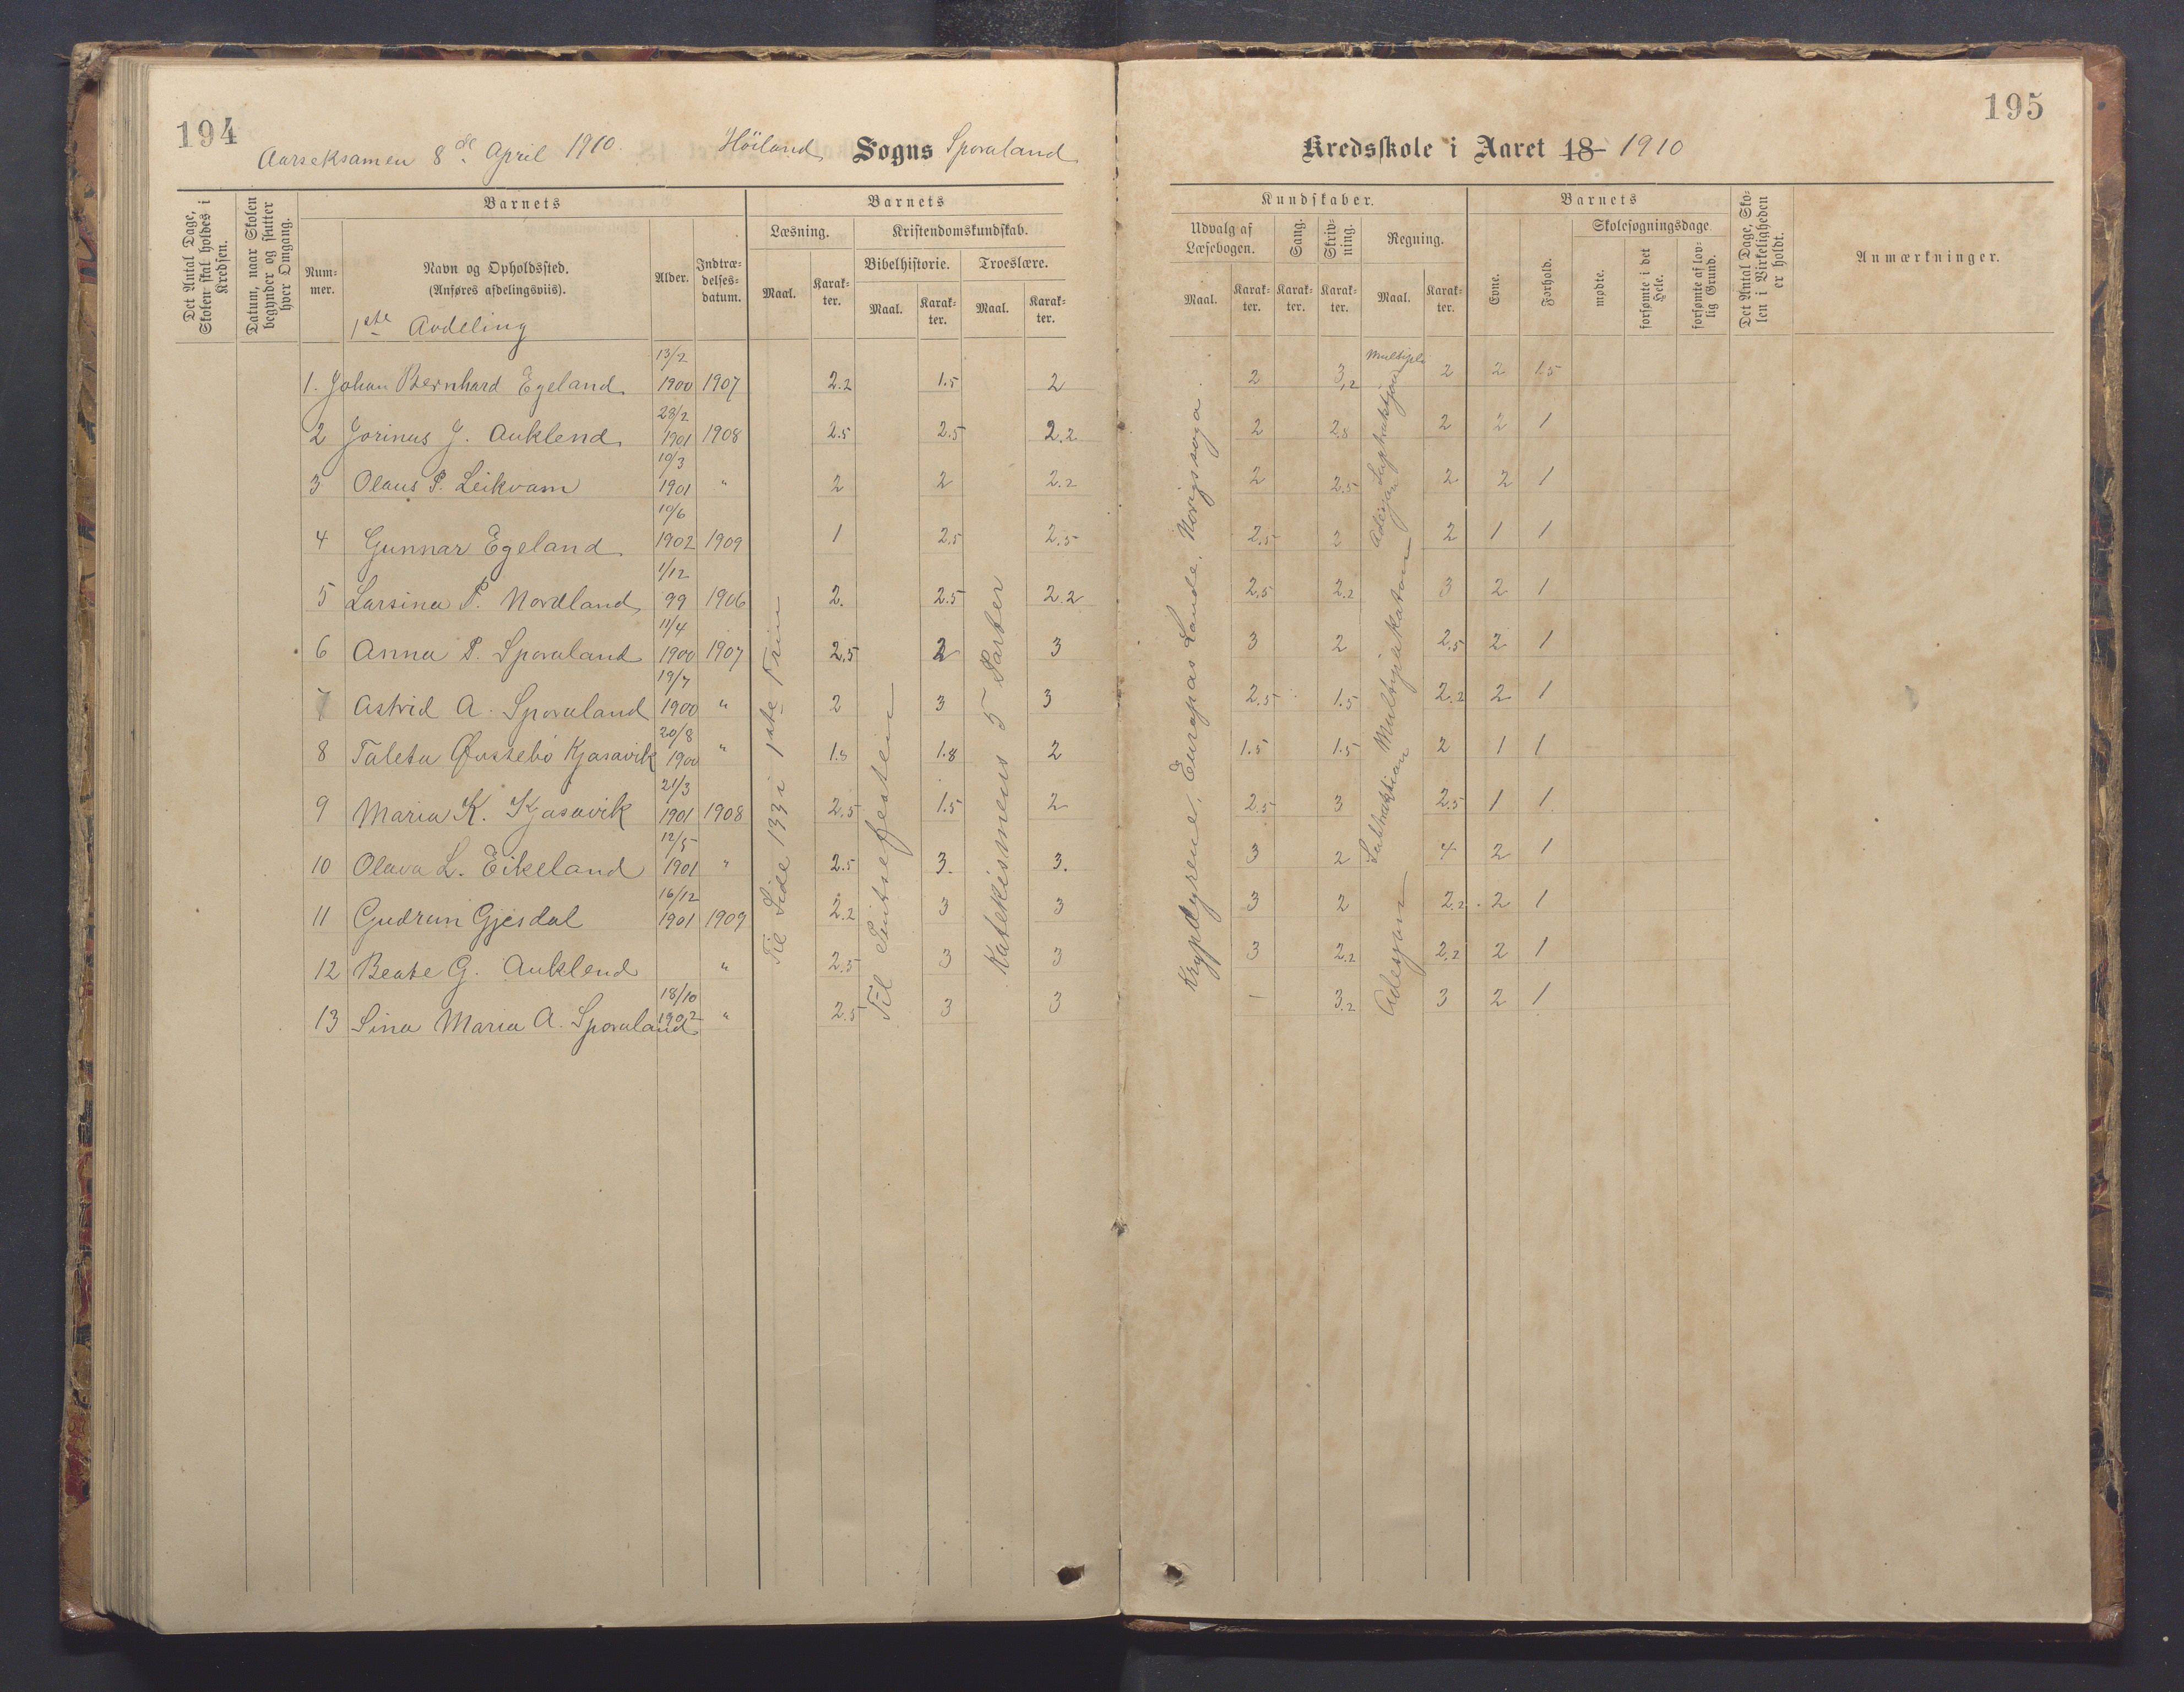 194
Aarseksamen 8de April 1910. Höiland Sogns Sporaland
Barnets
Barnets
Det Antal Dage, Skolen skal holdes i Kredsen.
Datum, naar Skolen begynder og slutter hver Omgang.
Nummer.
Navn og Opholdssted. (Anføres afdelingsviis).
Alder.
Indtrædelsesdatum.
Læsning.
Kristendomskundskab.
Bibelhistorie.
Troeslære.
Maal.
Karakter.
Maal.
Karakter.
Maal.
Karakter.
1ste Avdeling
1. Johan Bernhard Egeland 13/2 1900 1907 2.2 1.5 2
2 Jorinus J. Auklend 23/2 1901 1908 2.5 2.5 2.2
3 Olaus P. Leikvam 19/3 1901 " 2 2 2.2
4 Gunnar Egeland 19/6 1902 1909 1 2.5 2.5
5 Larsina P. Nordland 1/12 99 1906 2. 2.5 2.2
6 Anna P. Sporaland 11/4 1900 1907 2.5 2 3
7 Astrid A. Sporaland 19/7 1900 " 2 3 3
8 Taleta Øvstebö Kjosavik 20/8 1900 " 1.8 1.8 2
9 Maria K. Kjosavik 21/3 1901 1908 2.5 1.5 2
10 Olava L. Eikeland 12/5 1901 " 2.5 3. 3.
11 Gudrun Gjesdal 16/12 1901 1909 2.2 3 3
12 Beate G. Auklend " 2.5 3 3
13 Sina Maria A. Sporaland 18/10 1902 " 2.5 3 3
Til Side 133 i 1ste Trin
Til Pintsefesten
Katekismens 5 Parter
195
Kredsskole i Aaret 18 1910
Kundskaber.
Barnets
Udvalg af Læsebogen.
Sang.
Skrivning.
Regning.
Evne.
Forhold.
Skolesøgningsdage
Det Antal Dage, Skolen i Virkeligheden er holdt.
Anmærkninger.
Maal.
Karakter.
Karakter.
Karakter.
Maal.
Karakter.
mødte.
forsømte i det Hele.
forsømte af lovlig Grund.
2 3,2 2 2 1.5
2 2.8 2 2 1
2 2.5 2 2 1
2.5 2 2 1 1
2.5 2.2 3 2 1
3 2 2.5 2 1
2.5 1.5 2.2 2 1
1.5 1.5 2 1 1
2.5 3 2.5 1 1
3 2 4 2 1
3 2 2.2 2 1
3 2.2 2.2 2 1
- 3.2 3 2 1
Krypdyrene, Europas Lande, Norigssoga.
Multiplikation
Subtraktion